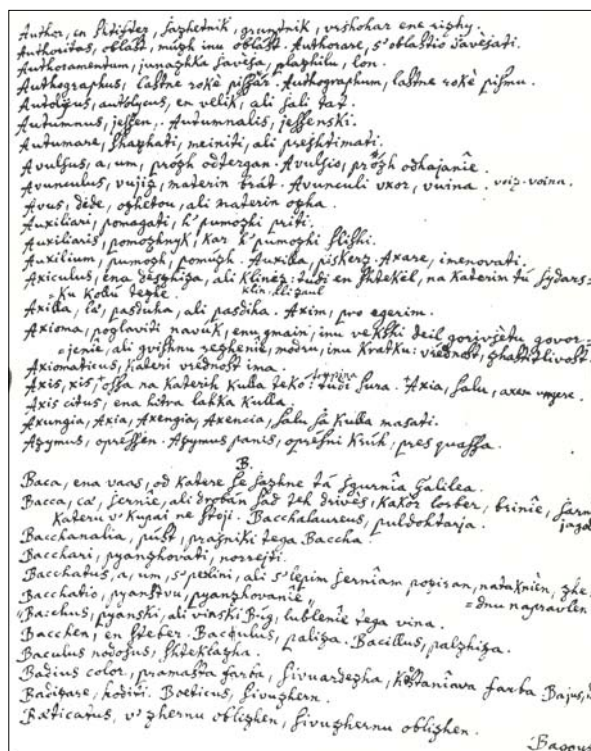 Author, en shtifter, sazhetnik, gruntnik, vrshohar ene rizhy.
Authoritas, oblast, muzh inu oblast. Authorare, s'oblastio savèsati.
Authoramentum, junazhka savesa, plazhilu, lon.
Authographus, lastne rokè pissar. Authographum, lastne rokè pismu.
Autolycus, autolycus, en velik, ali sali tat.
Autumnus, jessen. Autumnalis, jessenski.
Autumare, shazhati, meiniti, ali preshtimati.
Avulsus, a, um, prózh odtergan. Avulsio, prózh odhajanîe.
Avunculus, vujiz, materin brát. Avunculi uxor, vuina. voiz-voina.
Avus, déde, ozhetou, ali materin ozha.
Auxiliari, pomagati, k'pumozhi priti.
Auxiliaris, pomozhnyk, kar k'pumozhi slishi.
Auxilium, pumozh, pomúzh. Auxilla, piskerz. Axare, imenovati.
Axiculus, ena deszhiza, ali klinez: tudi en shtekel, na katerim tá sydars=
=ku kollú tezhe. klin,
Axilla, læ, pasduha, ali pasdiha. Axim, pro egerim.
Axioma, poglaviti navuk, enu gmain, inu ve deil govor=
=jenîe, ali gvishnu rezhenie, modru, inu kratku: vrédnost,
Axiomaticus, kateri vrédnost ima.
Axis, xis, ossa na katerih kulla teko: tudi sura. Axia, salu, axem ungere.
Axis citus, ena hitra lahka kulla.
Axungia, Axia, Axengia, Axencia, salu sa kulla masati.
Azymus, oprèssen. Azymus panis, oprèsni krúh, pres quassa.
B.
Baca, ena vaas, od katere se sazhne tá sgurnîa Galilea.
Bacca, cæ, sernîe, ali drobàn sád teh drivès, kakòr lorber, brinîe,
kateru v'kupai ne stoji. Bacchalaureus, puldohtarja.
Bacchanalia, púst, prazniki tega Baccha.
Bacchari, pyanzhovati, norrejti.
Bacchatus, a, um, s'perlini, ali s'lepim serniam poziran, nataknièn,
Bacchatio, pyanstvu, pyanzhovanîe. =dnu napravlen
Bacchus, pyanski, ali vinski Búg, lublenîe tega vina.
Bacchen, en steber. Bacculus, paliza. Bacillus, palzhiza.
Baculus nodosus, shteklazha.
Badius color, pramasta farba, sivuardezha, kostaniava farba Bajus,
Badizare, hoditi. Boeticus, sivuzhern.
Bæticatus, v'zhernu oblizhen, sivuzhernu oblizhen.